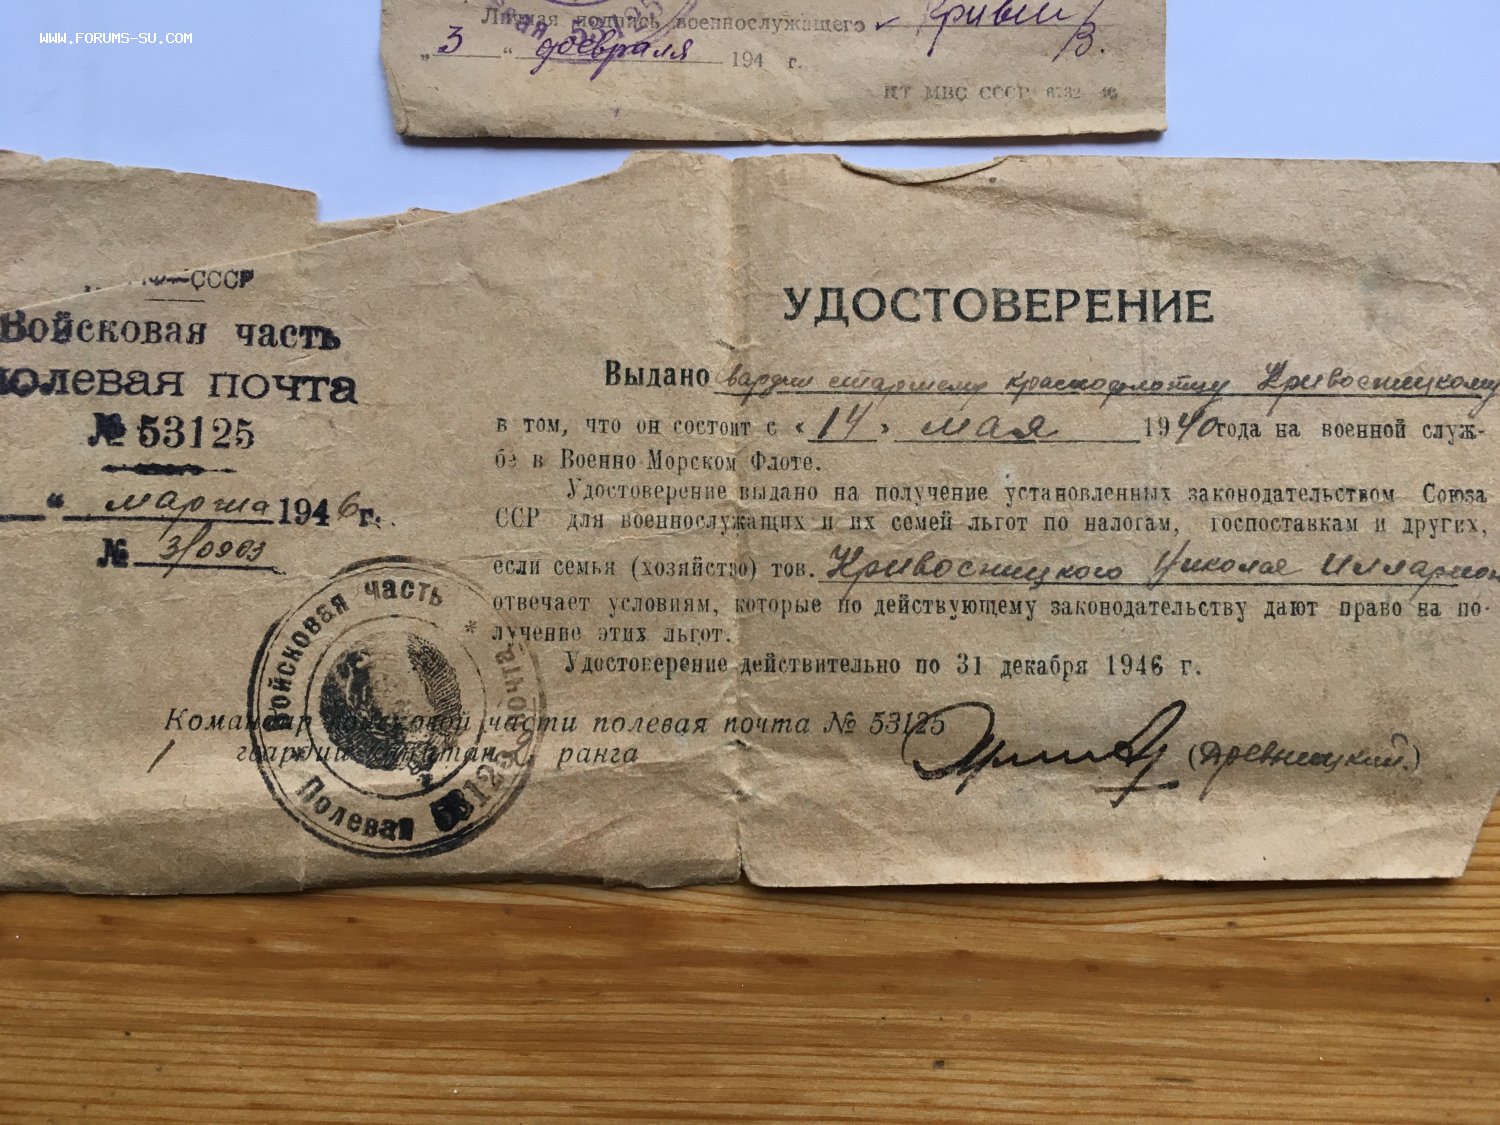 WWW.FORUMS-SU.COM
Личная подпись военнослужащего
„3“ февраля 194 г.
СССР
Войсковая часть
полевая почта
№ 53125
“ марта 1946 г.
№
УДОСТОВЕРЕНИЕ
Выдано гвардии старшему краснофлотцу Кривосницкому
в том, что он состоит с «14» мая 1940 года на военной служ-
бе в Военно-Морском Флоте.
Удостоверение выдано на получение установленных законодательством Союза
ССР для военнослужащих и их семей льгот по налогам, госпоставкам и других,
если семья (хозяйство) тов. Кривосницкого Николая Илларион
отвечает условиям, которые по действующему законодательству дают право на по-
лучение этих льгот.
Удостоверение действительно по 31 декабря 1946 г.
Командир войсковой части полевая почта № 53125
гвардии капитан ранга
Войсковая часть * Полевая почта 53125